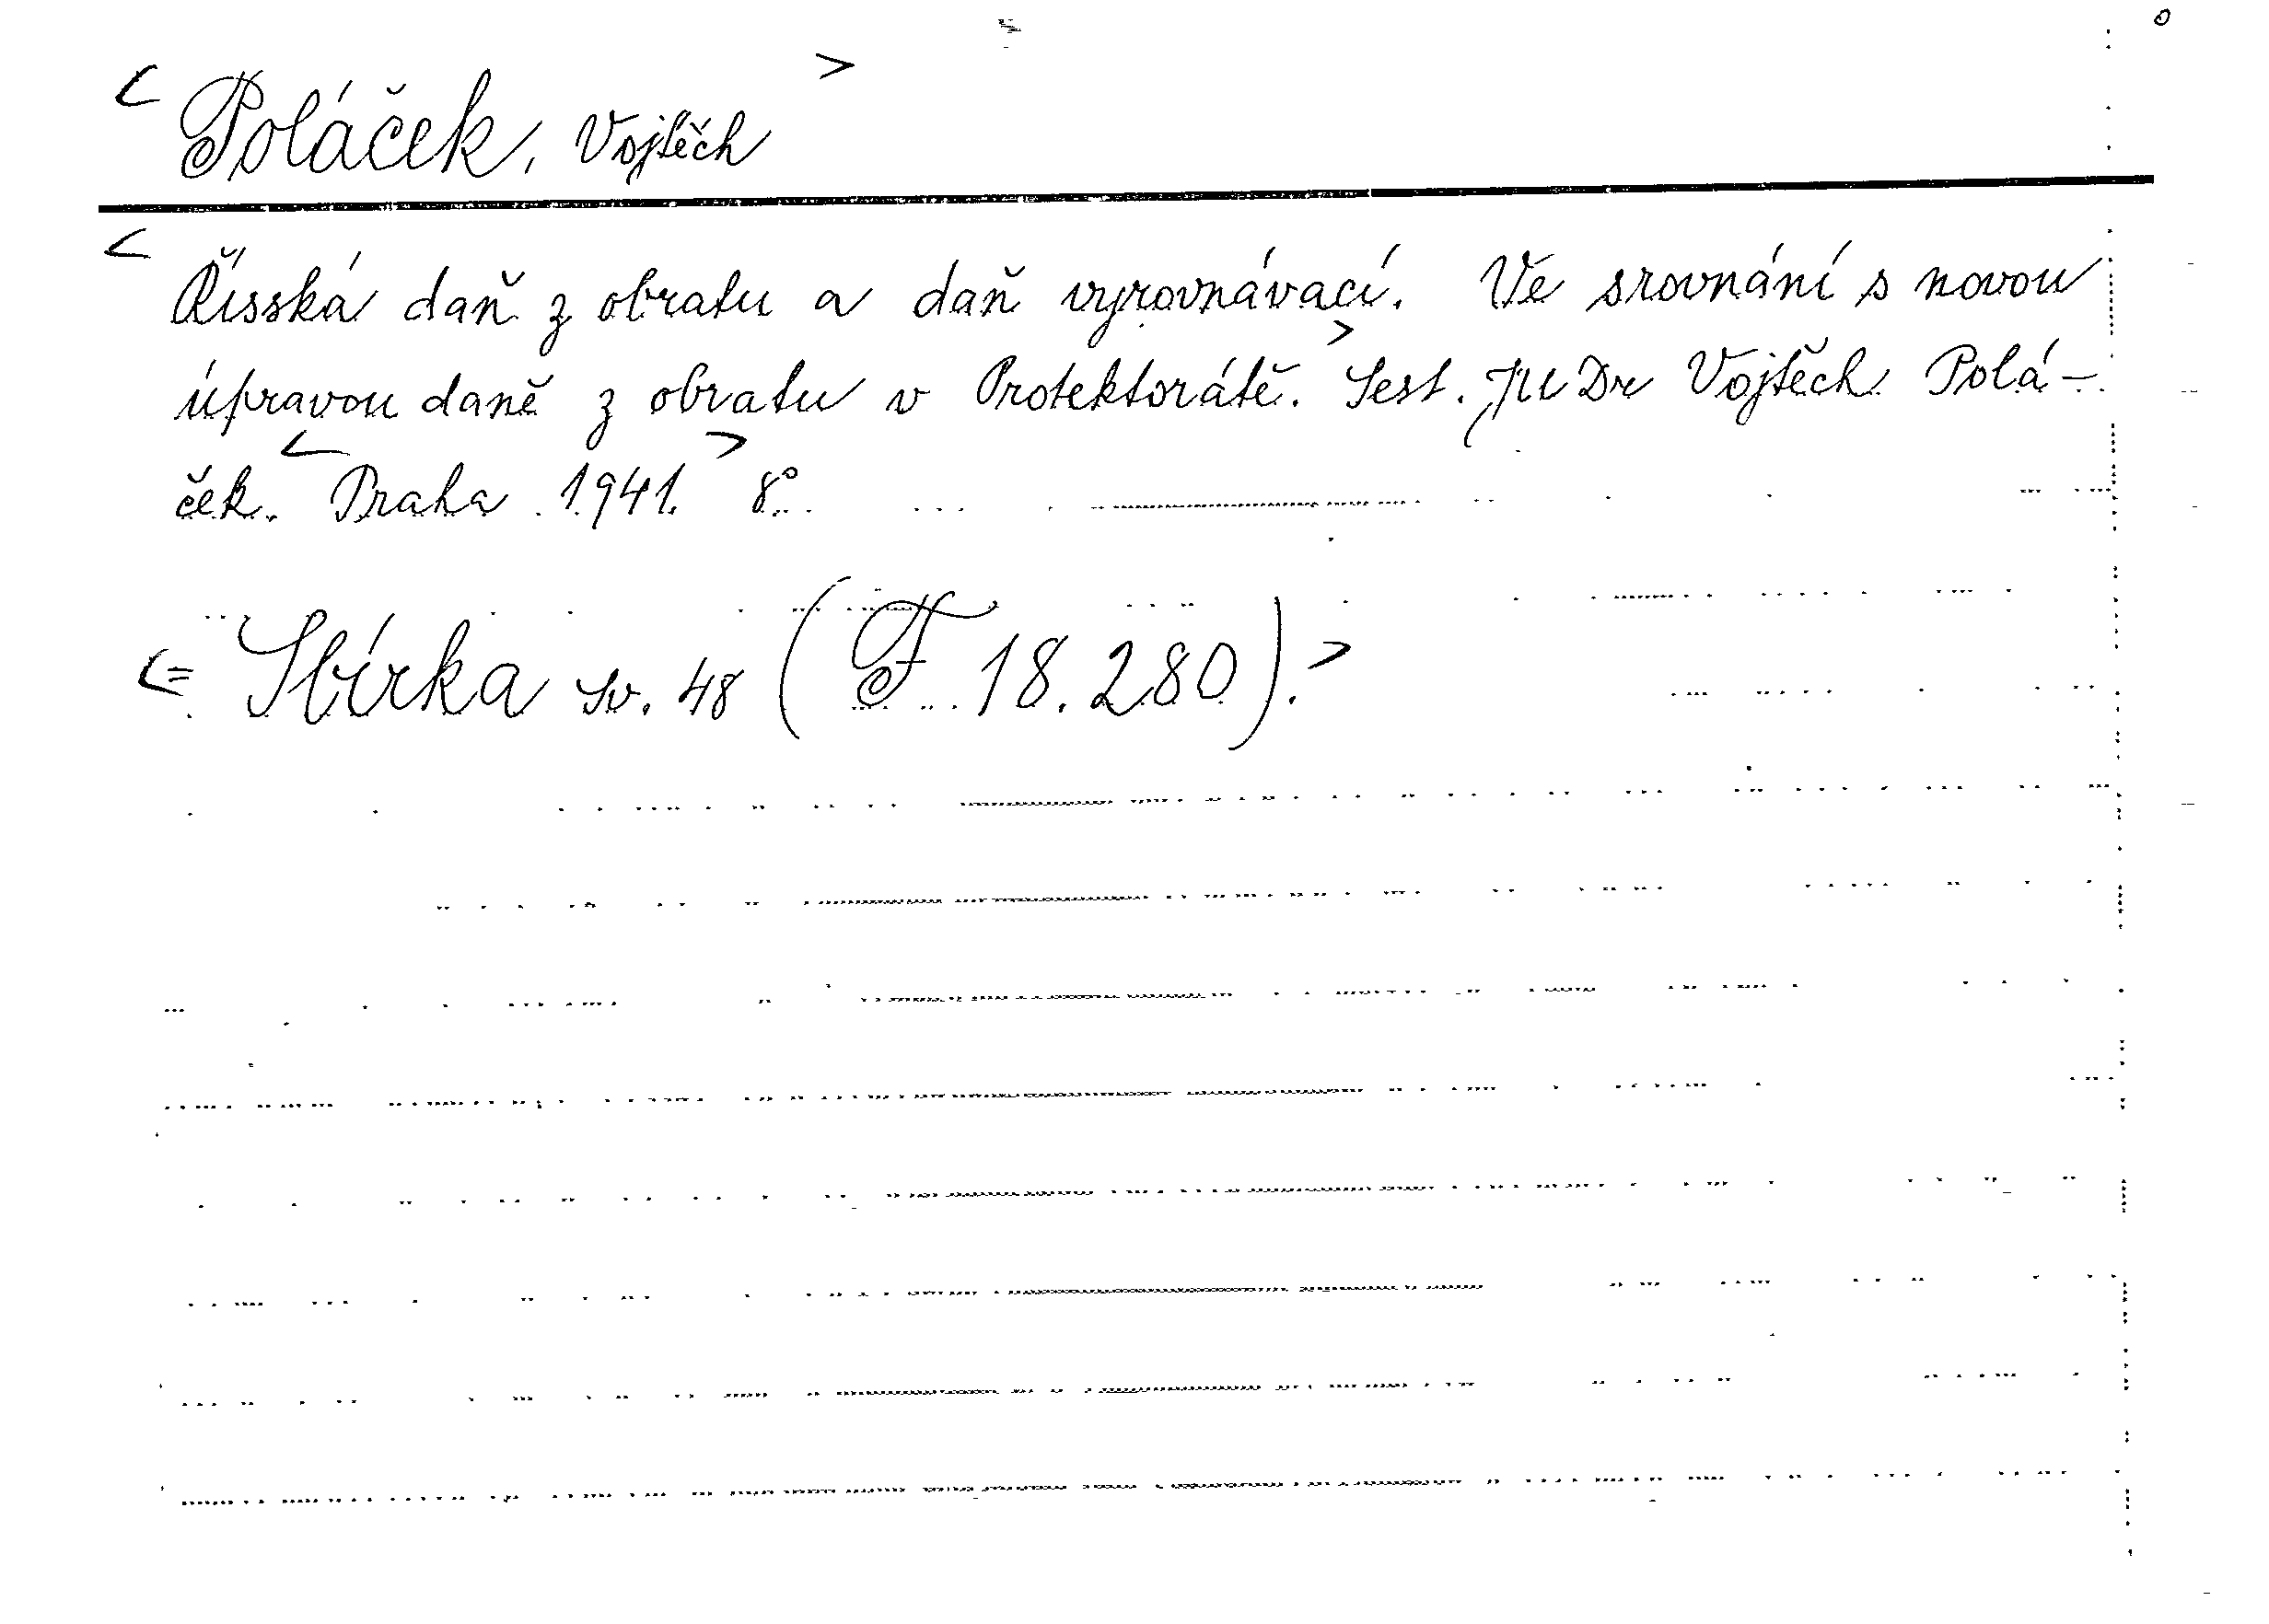 < Poláček, Vojtěch >
< Říšská daň z obratu a daň vyrovnávací. Ve srovnání s novou
úpravou daně z obratu v Protektorátě. > Sest. JUDr Vojtěch Polá-
ček. < Praha 1941. > 8°
<= Sbírka sv. 48 (F 18.280). >